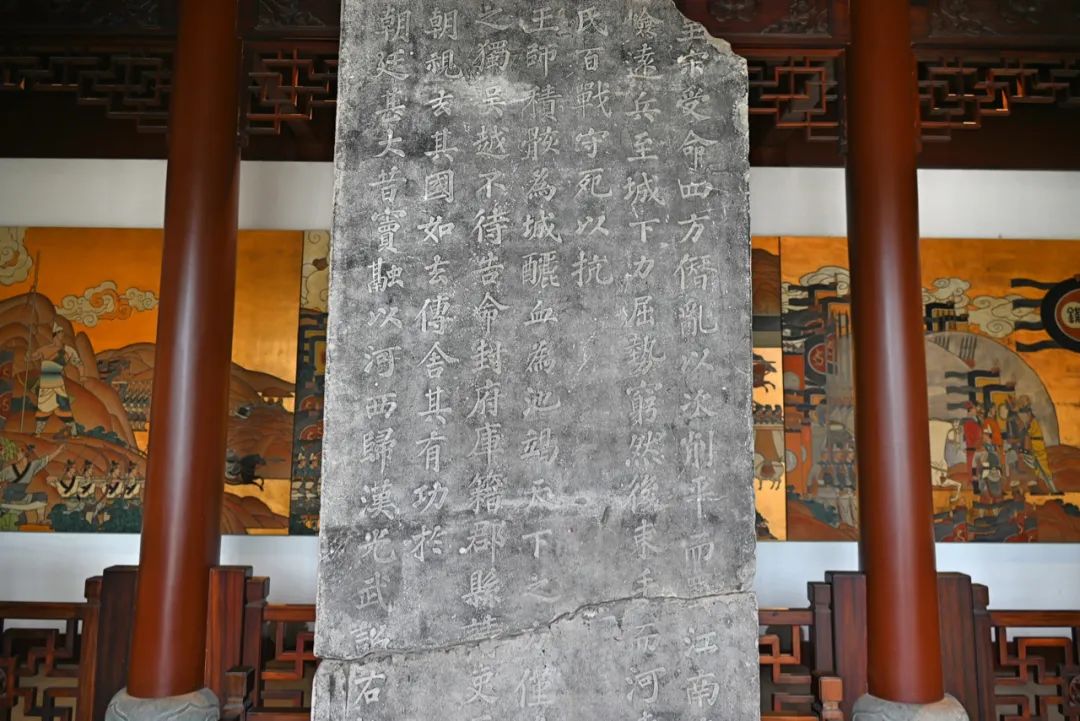 宋受命四方僭亂以次削平而江南
嶮遠兵至城下力屈勢窮然後束手而河
氏百戰守死以抗
王師積骸為城釃血為池竭天下之僅
之獨吳越不待告命封府庫籍郡縣請吏
朝視去其國如去傳舍其有功於
朝廷甚大昔竇融以河西歸漢光武詔右